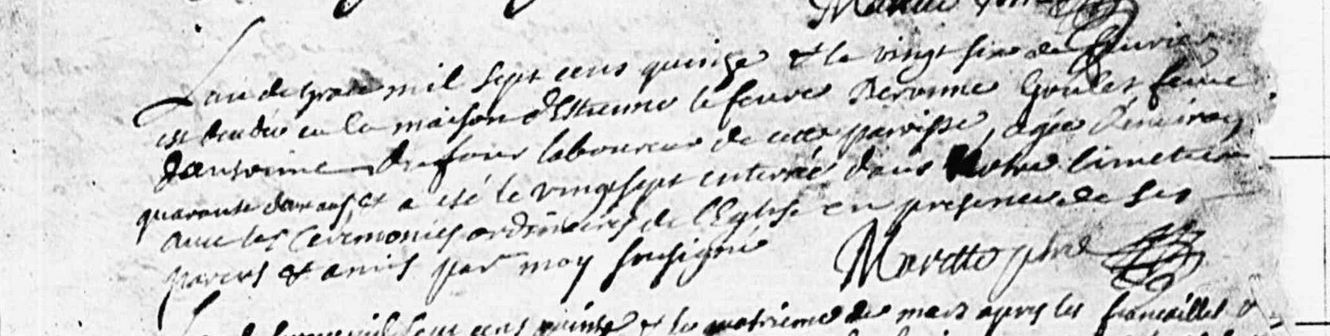 L'an de grace mil sept cens quinze & le vingt six de fevrier
est decedée en la maison d'Estienne lefevre Peronne Goulet femme
d'Antoine Dufour laboureur de cette paroisse, agée d'environ
quarante deux ans, & a été le vingt sept enterrée dans Notre cimetier
avec les Ceremonies ordinaires de l'Eglise en presence de ses
parens & amis par moy soussigné Marette
mil sept cens quinze & le quatrieme de mars apres les fiancailles &